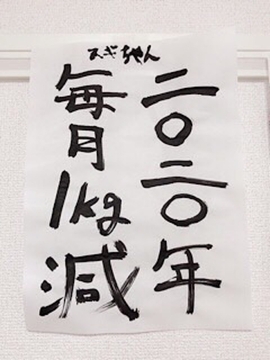 スギちゃん
二〇二〇年
毎月1kg減